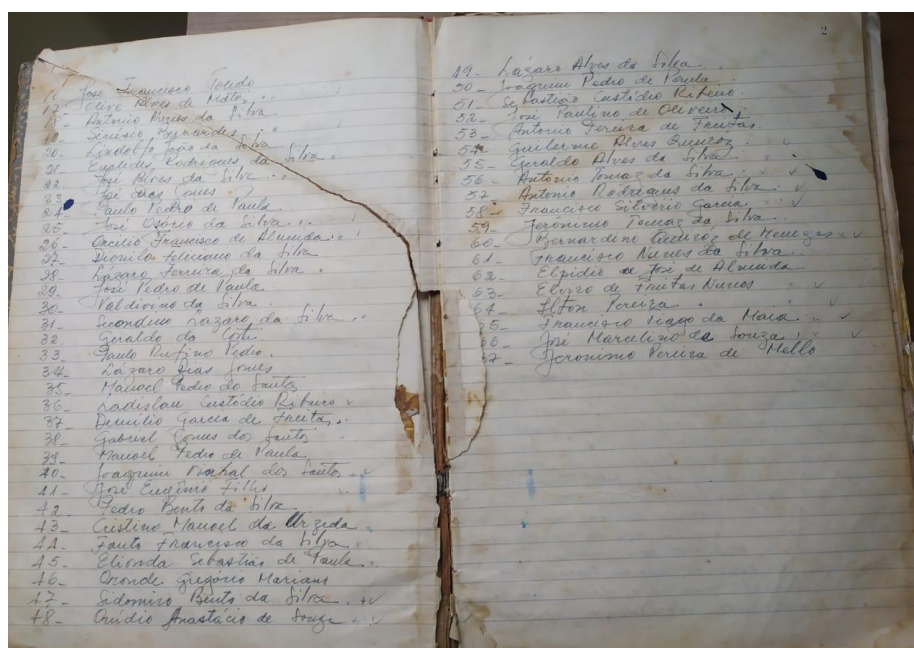 16- José Francisco Toledo
17- Olivo Alves de Matos
18- Antonio Nunes da Silva
19- Bernardes
20- Lindolfo José da Silva
21- Euplides Rodrigues da Silva
22- José Alves da Silva
23- José Dias Gomes
24- Paulo Pedro de Paula
25- José Osório da Silva
26- Francisco de Almeida
27- Dionilo Feliciano da Silva
28- Lázaro Ferreira da Silva
29- José Pedro de Paula
30- Valdivino da Silva
31- Secondino Lazaro da Silva
32- Geraldo da
33- Paulo Rufino Pedro
34- Lázaro Dias Gomes
35- Manoel Pedro do Santos
36- Ladislau Custódio Ribeiro
37- Demilio Garcia de Freitas
38- Gabriel Gomes dos Santos
39- Manoel Pedro de Paula
40- Joaquim dos Santos
41- José Eugênio Filho
42- Pedro Bento da Silva
43- Cristino Manoel da
44- Fausto Francisco da Silva
45- Elionda Sebastião de Paula
46- Oronde Gregório Mariano
47- Sidomiro Bento da Silva
48- Ovídio Anastácio de Souza
2
49- Lázaro Alves da Silva
50- Joaquim Pedro de Paula
51- Sebastião Custódio Ribeiro
52- José Paulino de Oliveira
53- Antonio Pereira de Freitas
54- Guilherme Alves Queiroz
55- Geraldo Alves da Silva
56- Antonio Tomaz da Silva
57- Antonio Rodrigues da Silva
58- Francisco Silvério Garcia
59- Jeronimo Tomaz da Silva
60- Bernardino Queiroz de Menezes
61- Francisco Nunes da Silva
62- Elpidio José de Almeida
63- Elvizo de Freitas Nunes
64- Ilton Pereira
65- Francisco Tiago da Maia
66- José Marcelino da Souza
67- Jeronimo Pereira de Mello